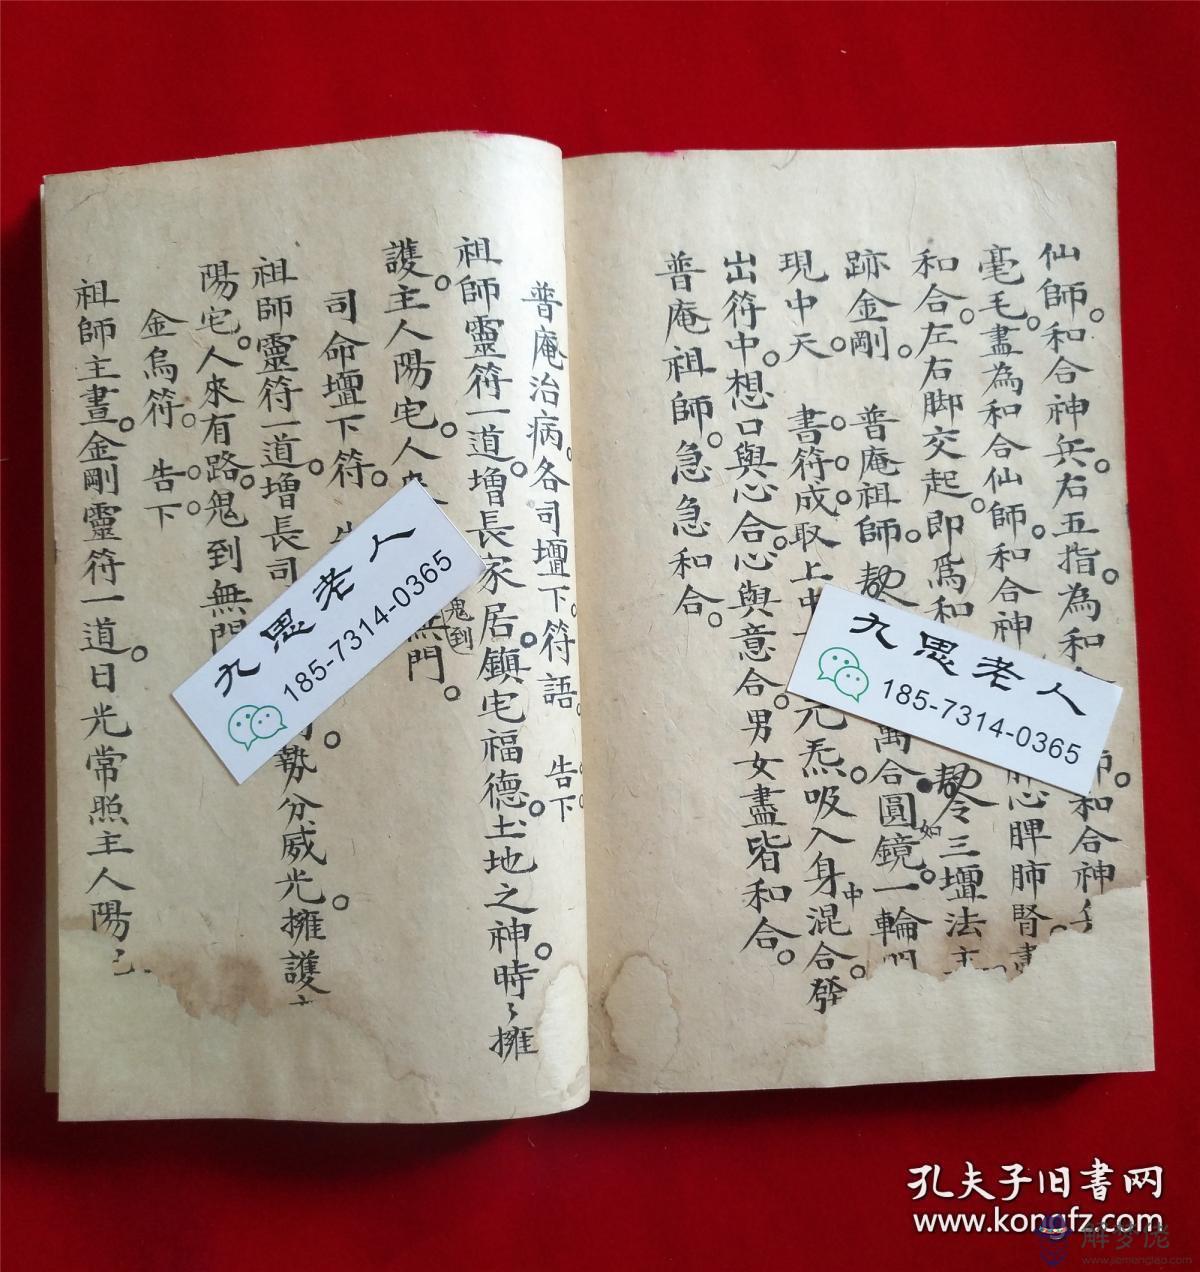 仙師。和合神兵。右五指為和
師。和合神
毫毛。盡為和合仙師。和合神
肝心脾肺腎
和合。左右脚交起。即爲和
勅令三壇法主
跡金剛。 普庵祖師。勅
萬合圓鏡。一輪
如
現中天。 書符。成取上
元炁。吸入身中混合。發
出符中。想口與心合。心與意合。男女盡皆和合。
普庵祖師。急急和合。
普庵治病。各司壇下。符語。 告下。
祖師靈符一道。增長家居。鎮宅福德。土地之神。時々擁
護。主人陽宅。人來
鬼到無門。
司命壇下符。
祖師靈符一道。增長司
勢分威光。擁護
陽宅。人來有路。鬼到無門
金烏符。 告下。
祖師主晝。金剛靈符一道。日光常照主人陽
九思老人
185-7314-0365
九思老人
185-7314-0365
孔夫子旧书网
www.kongfz.com
解梦佬
www.jiemenglao.com